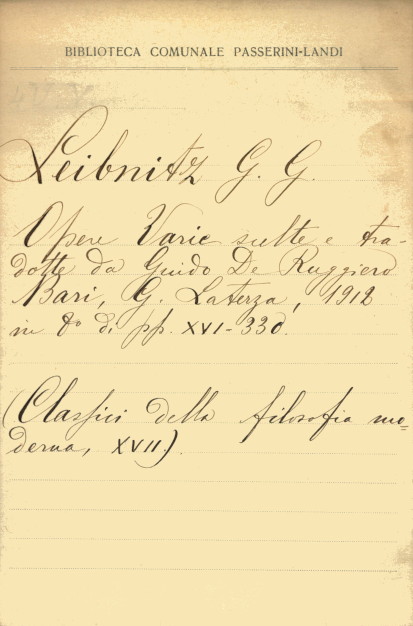 BIBLIOTECA COMUNALE PASSERINI-LANDI
Leibnitz G. G.
Opere Varie scelte e tra-
dotte da Guido De Ruggiero
Bari, G. Laterza, 1912
in 8º di pp. XVI-330.
(Classici della filosofia mo=
derna, XVII.)